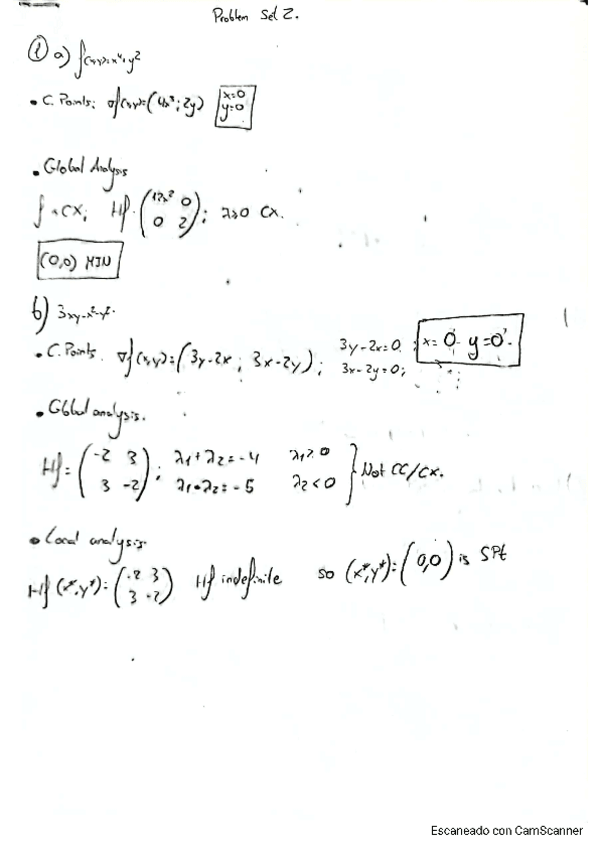 Problem Set 2.
① a) f(x,y)=x⁴+y²
• C. Points: ∇f(x,y)=(4x³; 2y) x=0 y=0
• Global Analysis
f → CX; Hf = (12x² 0 0 2); λ≥0 CX.
(0,0) MIN
b) 3xy-x²-y².
• C. Points. ∇f(x,y)=(3y-2x ; 3x-2y); 3y-2x=0 3x-2y=0; ; x=0. y=0.
• Global analysis.
Hf=(-2 3 3 -2); λ1+λ2=-4 λ1•λ2=-5 λ1≥0 λ2<0 } Not CC/CX.
• Local analysis.
Hf(x*,y*)=(-2 3 3 -2) Hf indefinite so (x*,y*)=(0,0) is SPt
Escaneado con CamScanner